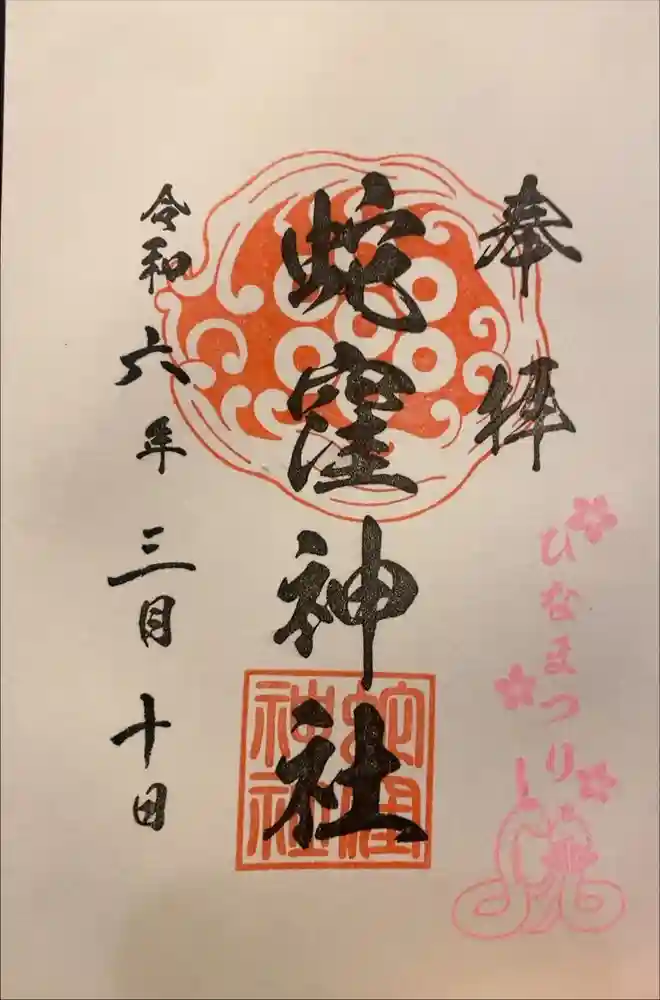 奉拝
ひなまつり
蛇窪神社
蛇窪神社
令和六年三月十日